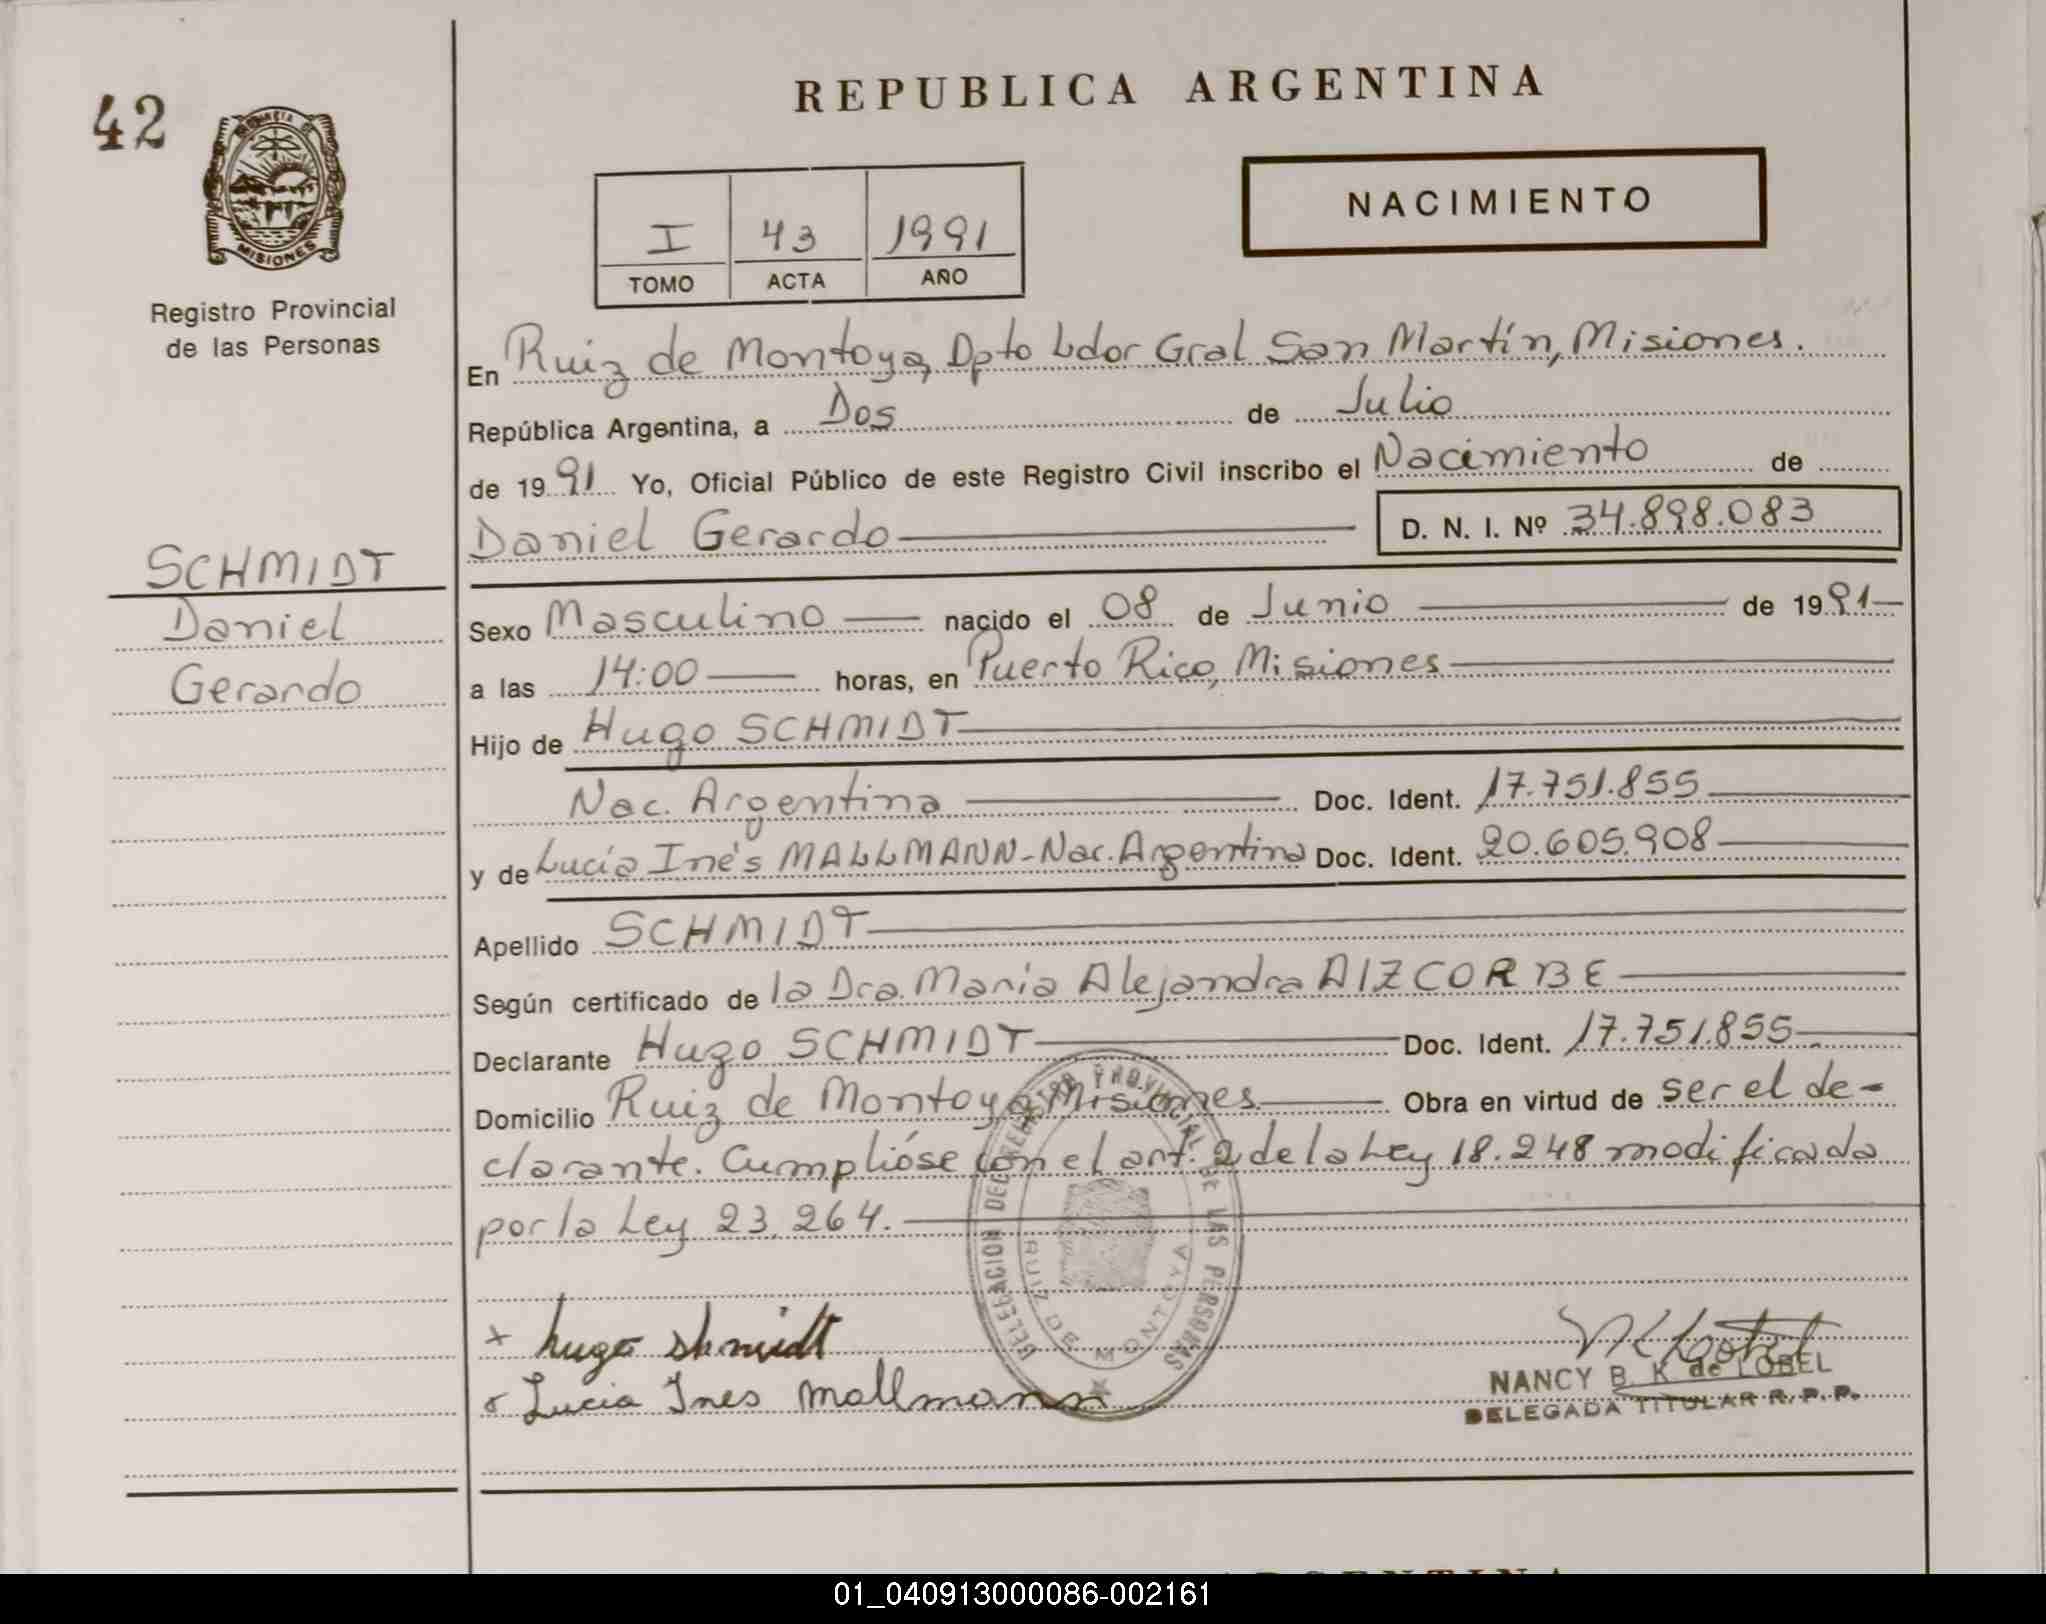 42
REPUBLICA ARGENTINA
PROVINCIA DE
MISIONES
Registro Provincial
de las Personas
NACIMIENTO
I 43 1991
TOMO ACTA AÑO
En Ruiz de Montoya, Dpto Ldor Gral San Martín, Misiones.
República Argentina, a Dos de Julio
de 1991 Yo, Oficial Público de este Registro Civil inscribo el Nacimiento de
Daniel Gerardo D. N. I. Nº 34.898.083
SCHMIDT
Daniel
Gerardo
Sexo Masculino nacido el 08 de Junio de 1991
a las 14:00 horas, en Puerto Rico, Misiones
Hijo de Hugo SCHMIDT
Nac. Argentina Doc. Ident. 17.751.855
y de Lucía Inés MALLMANN-Nac. Argentina Doc. Ident. 20.605.908
Apellido SCHMIDT
Según certificado de la Dra. María Alejandra AIZCORBE
Declarante Hugo SCHMIDT Doc. Ident. 17.751.855
Domicilio Ruiz de Montoya Misiones Obra en virtud de ser el de-
clarante. Cumplióse con el art. 2 de la Ley 18.248 modificada
por la Ley 23.264.
DELEGACION DEL REGISTRO PROVINCIAL DE LAS PERSONAS
RUIZ DE MONTOYA
+ hugo shmidt
Lucia Ines Mallmann
NANCY B. K de LOBEL
DELEGADA TITULAR R. P. P.
ARGENTINA
01_040913000086-002161